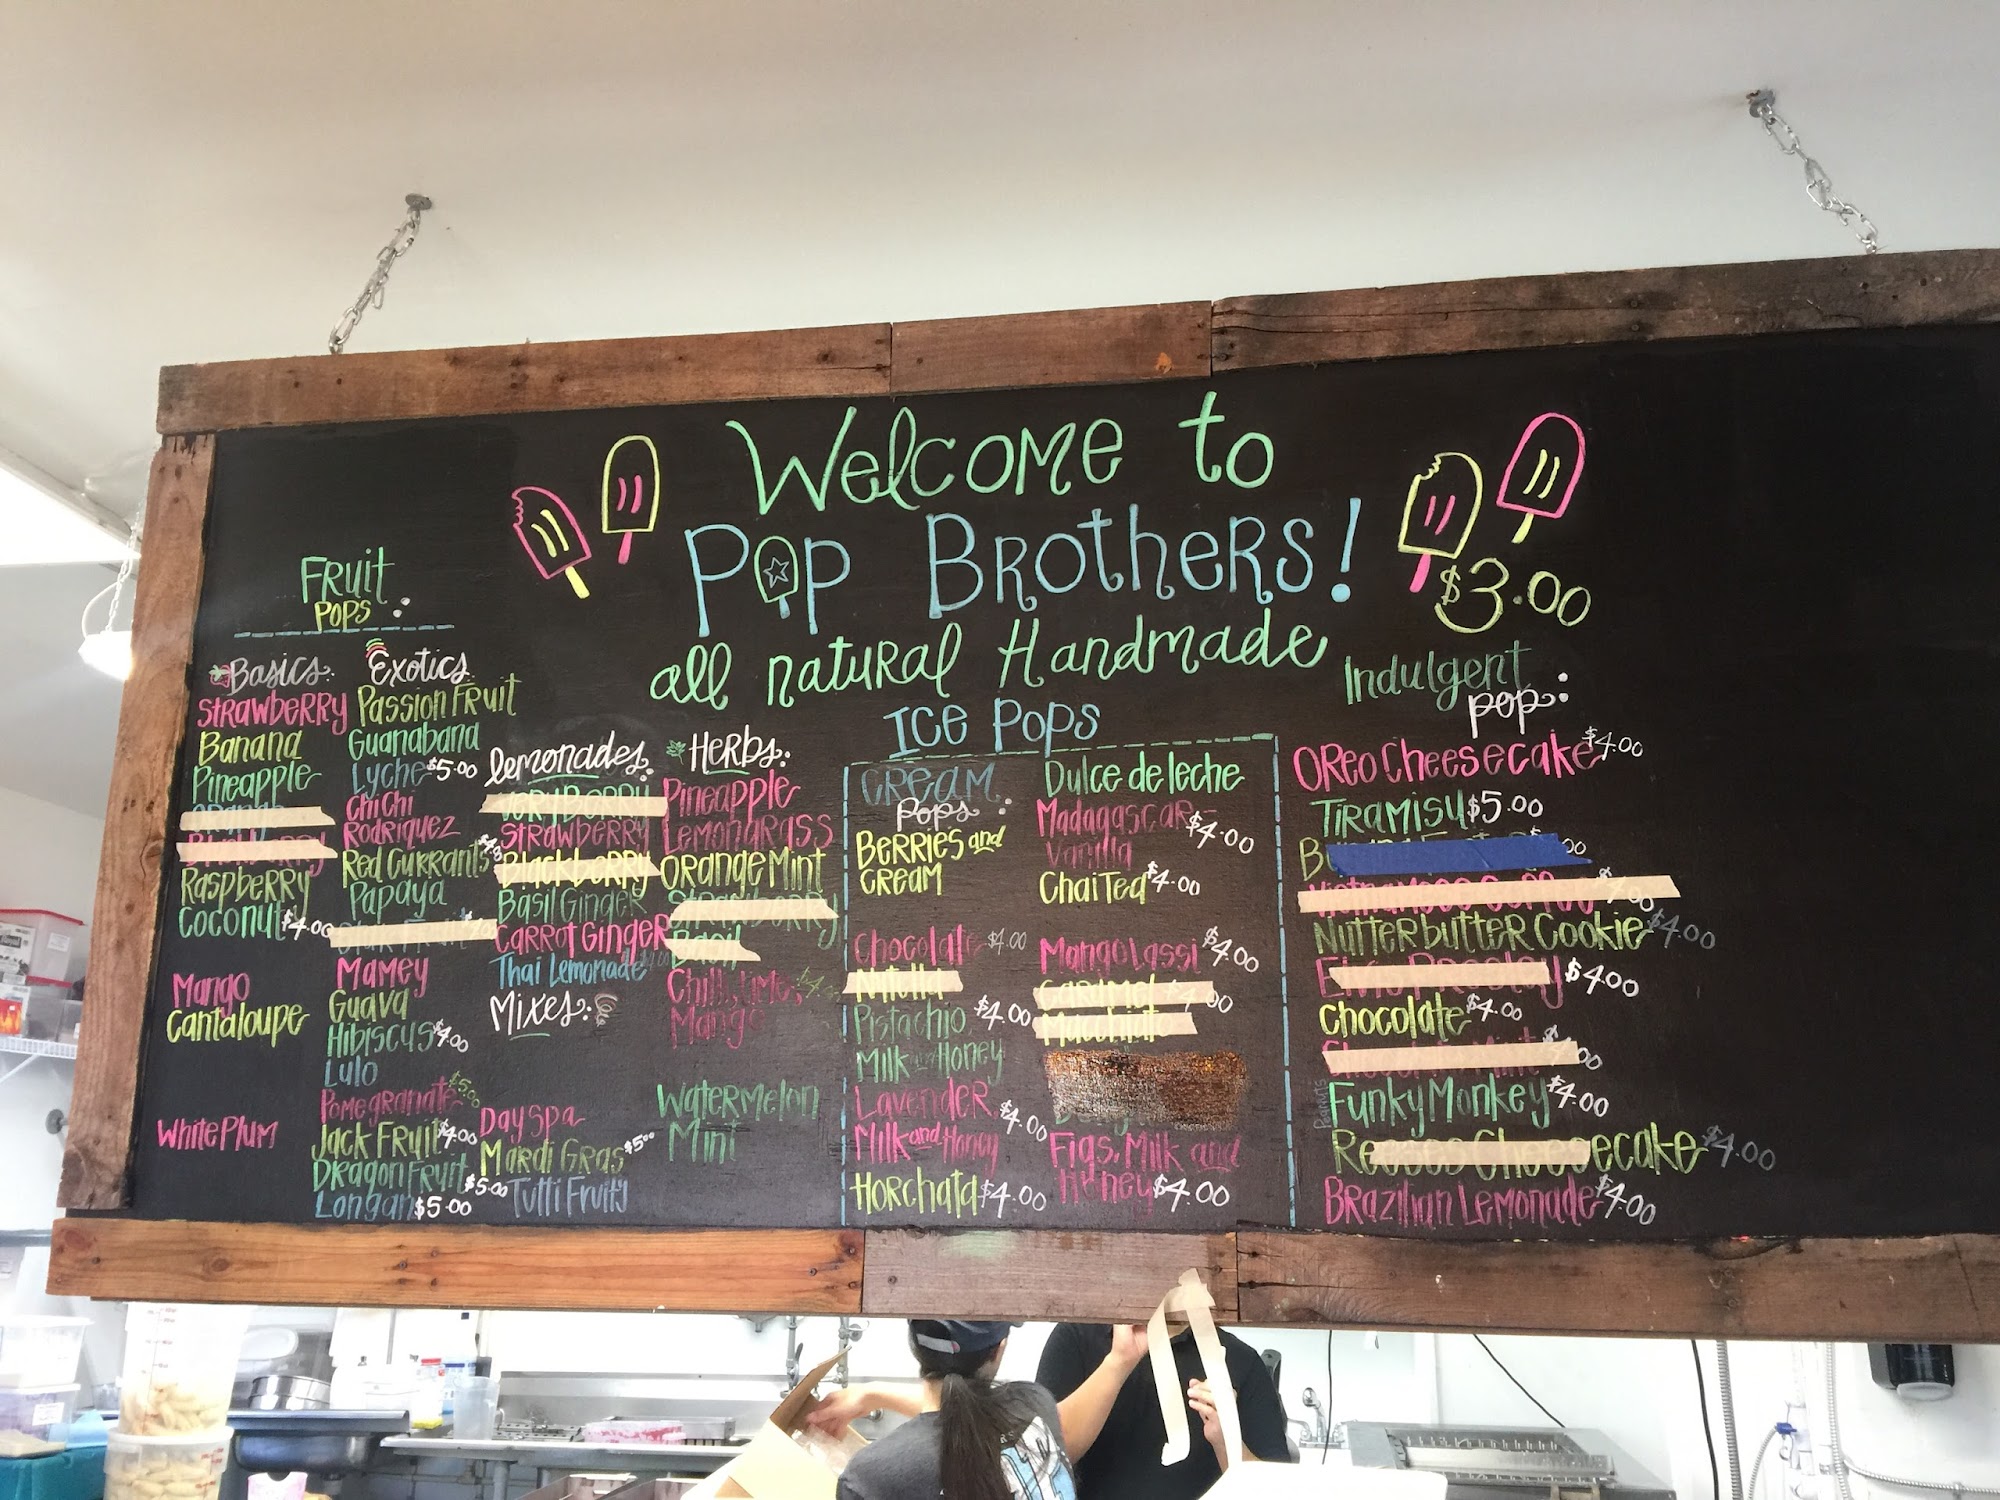 Welcome to
Pop Brothers!
all natural Handmade
Ice Pops
$3.00
Fruit
Pops:
Basics:
Strawberry
Banana
Pineapple
Raspberry
Coconut $4.00
Mango
Cantaloupe
White Plum
Exotics
Passion Fruit
Guanabana
Lyche $5.00
Chi Chi
Rodriquez
Red Currants
Papaya
Mamey
Guava
Hibiscus $4.00
Lulo
Pomegranate $5.00
Jack Fruit $4.00
Dragon Fruit $5.00
Longan $5.00
Lemonades:
Very Berry
Strawberry
Blackberry
Basil Ginger
Carrot Ginger
Thai Lemonade
Mixes:
Day Spa
Mardi Gras $5.00
Tutti Fruity
Herbs:
Pineapple
Lemongrass
Orange Mint
Strawberry
Basil
Chili, Lime,
Mango
Watermelon
Mint
Cream
Pops:
Berries and
Cream
Chocolate $4.00
Nutella
Pistachio $4.00
Milk and Honey
Lavender, $4.00
Milk and Honey
Horchata $4.00
Dulce de leche
Madagascar $4.00
Vanilla
Chai Tea $4.00
Mango Lassi $4.00
Caramel
Figs, Milk and
Honey $4.00
Indulgent
Pop:
Oreo Cheesecake $4.00
Tiramisu $5.00
Nutter butter Cookie $4.00
$4.00
Chocolate $4.00
Peanuts
Funky Monkey $4.00
Reeses Cheesecake $4.00
Brazilian Lemonade $4.00